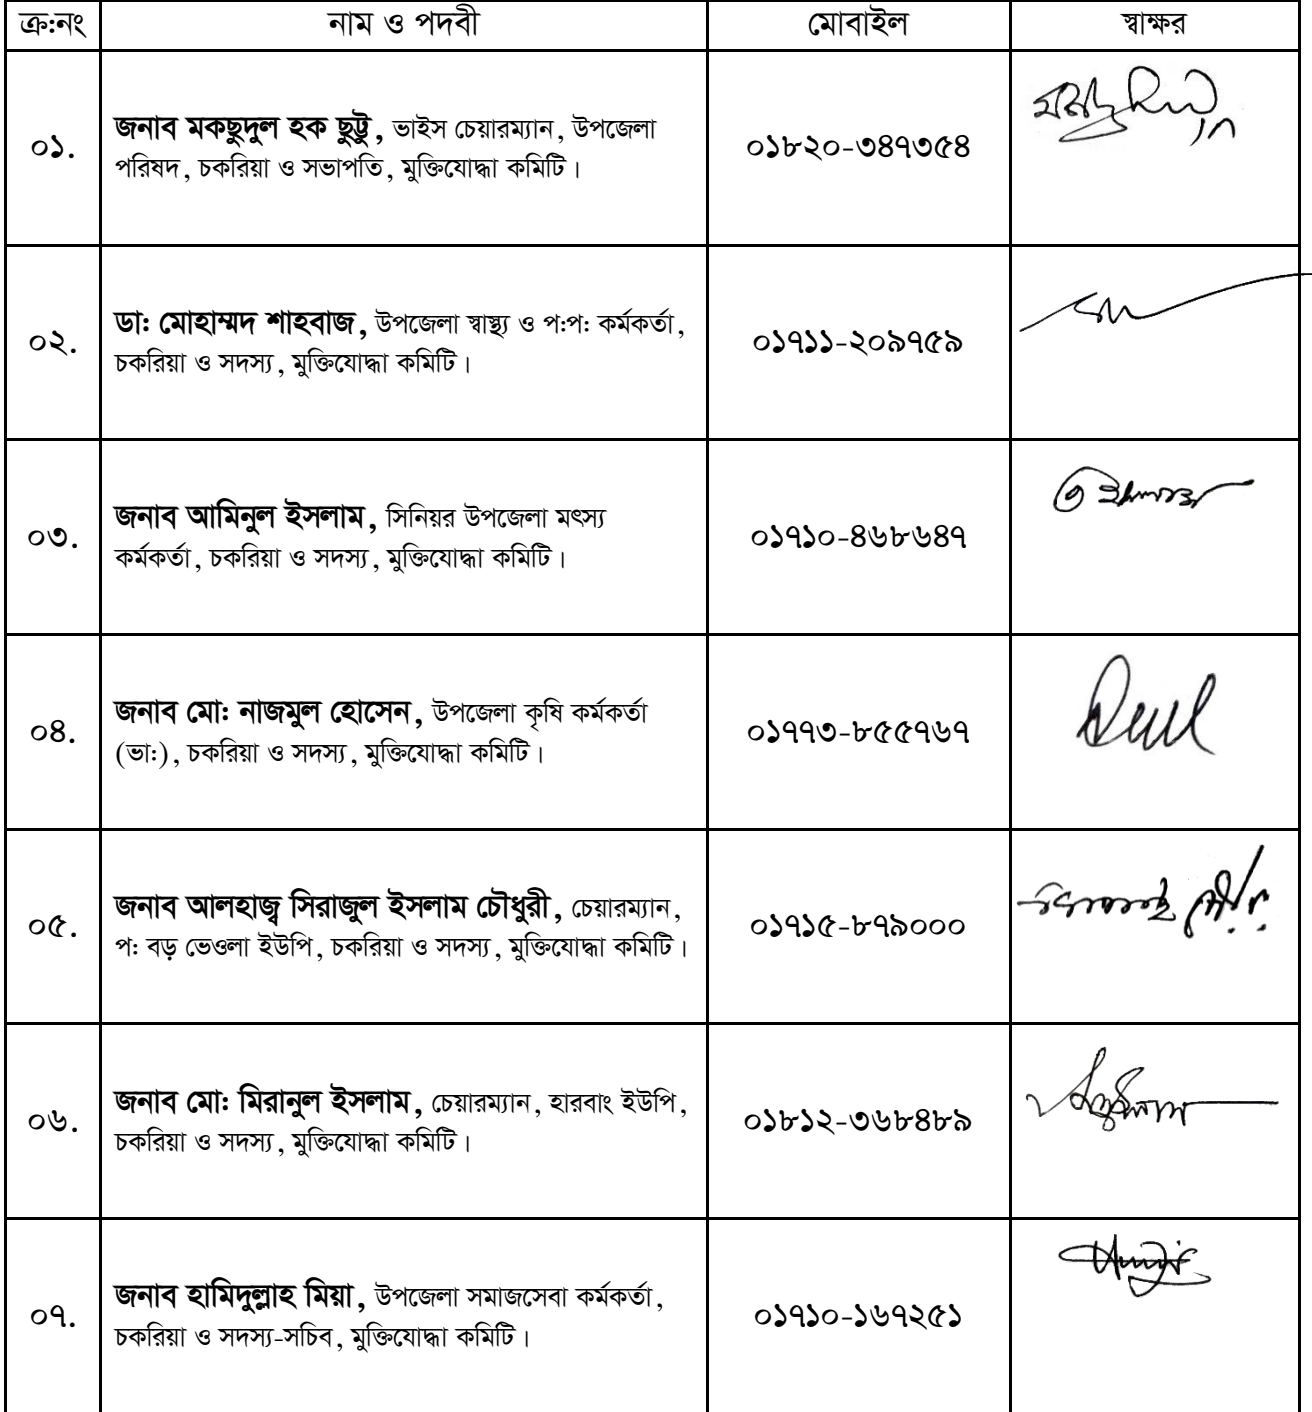 ক্র:নং নাম ও পদবী মোবাইল স্বাক্ষর
০১. জনাব মকছুদুল হক ছুট্টু, ভাইস চেয়ারম্যান, উপজেলা
পরিষদ, চকরিয়া ও সভাপতি, মুক্তিযোদ্ধা কমিটি। ০১৮২০-৩৪৭৩৫৪
০২. ডা: মোহাম্মদ শাহবাজ, উপজেলা স্বাস্থ্য ও প:প: কর্মকর্তা,
চকরিয়া ও সদস্য, মুক্তিযোদ্ধা কমিটি। ০১৭১১-২০৯৭৫৯
০৩. জনাব আমিনুল ইসলাম, সিনিয়র উপজেলা মৎস্য
কর্মকর্তা, চকরিয়া ও সদস্য, মুক্তিযোদ্ধা কমিটি। ০১৭১০-৪৬৮৬৪৭
০৪. জনাব মো: নাজমুল হোসেন, উপজেলা কৃষি কর্মকর্তা
(ভা:), চকরিয়া ও সদস্য, মুক্তিযোদ্ধা কমিটি। ০১৭৭৩-৮৫৫৭৬৭
০৫. জনাব আলহাজ্ব সিরাজুল ইসলাম চৌধুরী, চেয়ারম্যান,
প: বড় ভেওলা ইউপি, চকরিয়া ও সদস্য, মুক্তিযোদ্ধা কমিটি। ০১৭১৫-৮৭৯০০০
০৬. জনাব মো: মিরানুল ইসলাম, চেয়ারম্যান, হারবাং ইউপি,
চকরিয়া ও সদস্য, মুক্তিযোদ্ধা কমিটি। ০১৮১২-৩৬৮৪৮৯
০৭. জনাব হামিদুল্লাহ মিয়া, উপজেলা সমাজসেবা কর্মকর্তা,
চকরিয়া ও সদস্য-সচিব, মুক্তিযোদ্ধা কমিটি। ০১৭১০-১৬৭২৫১